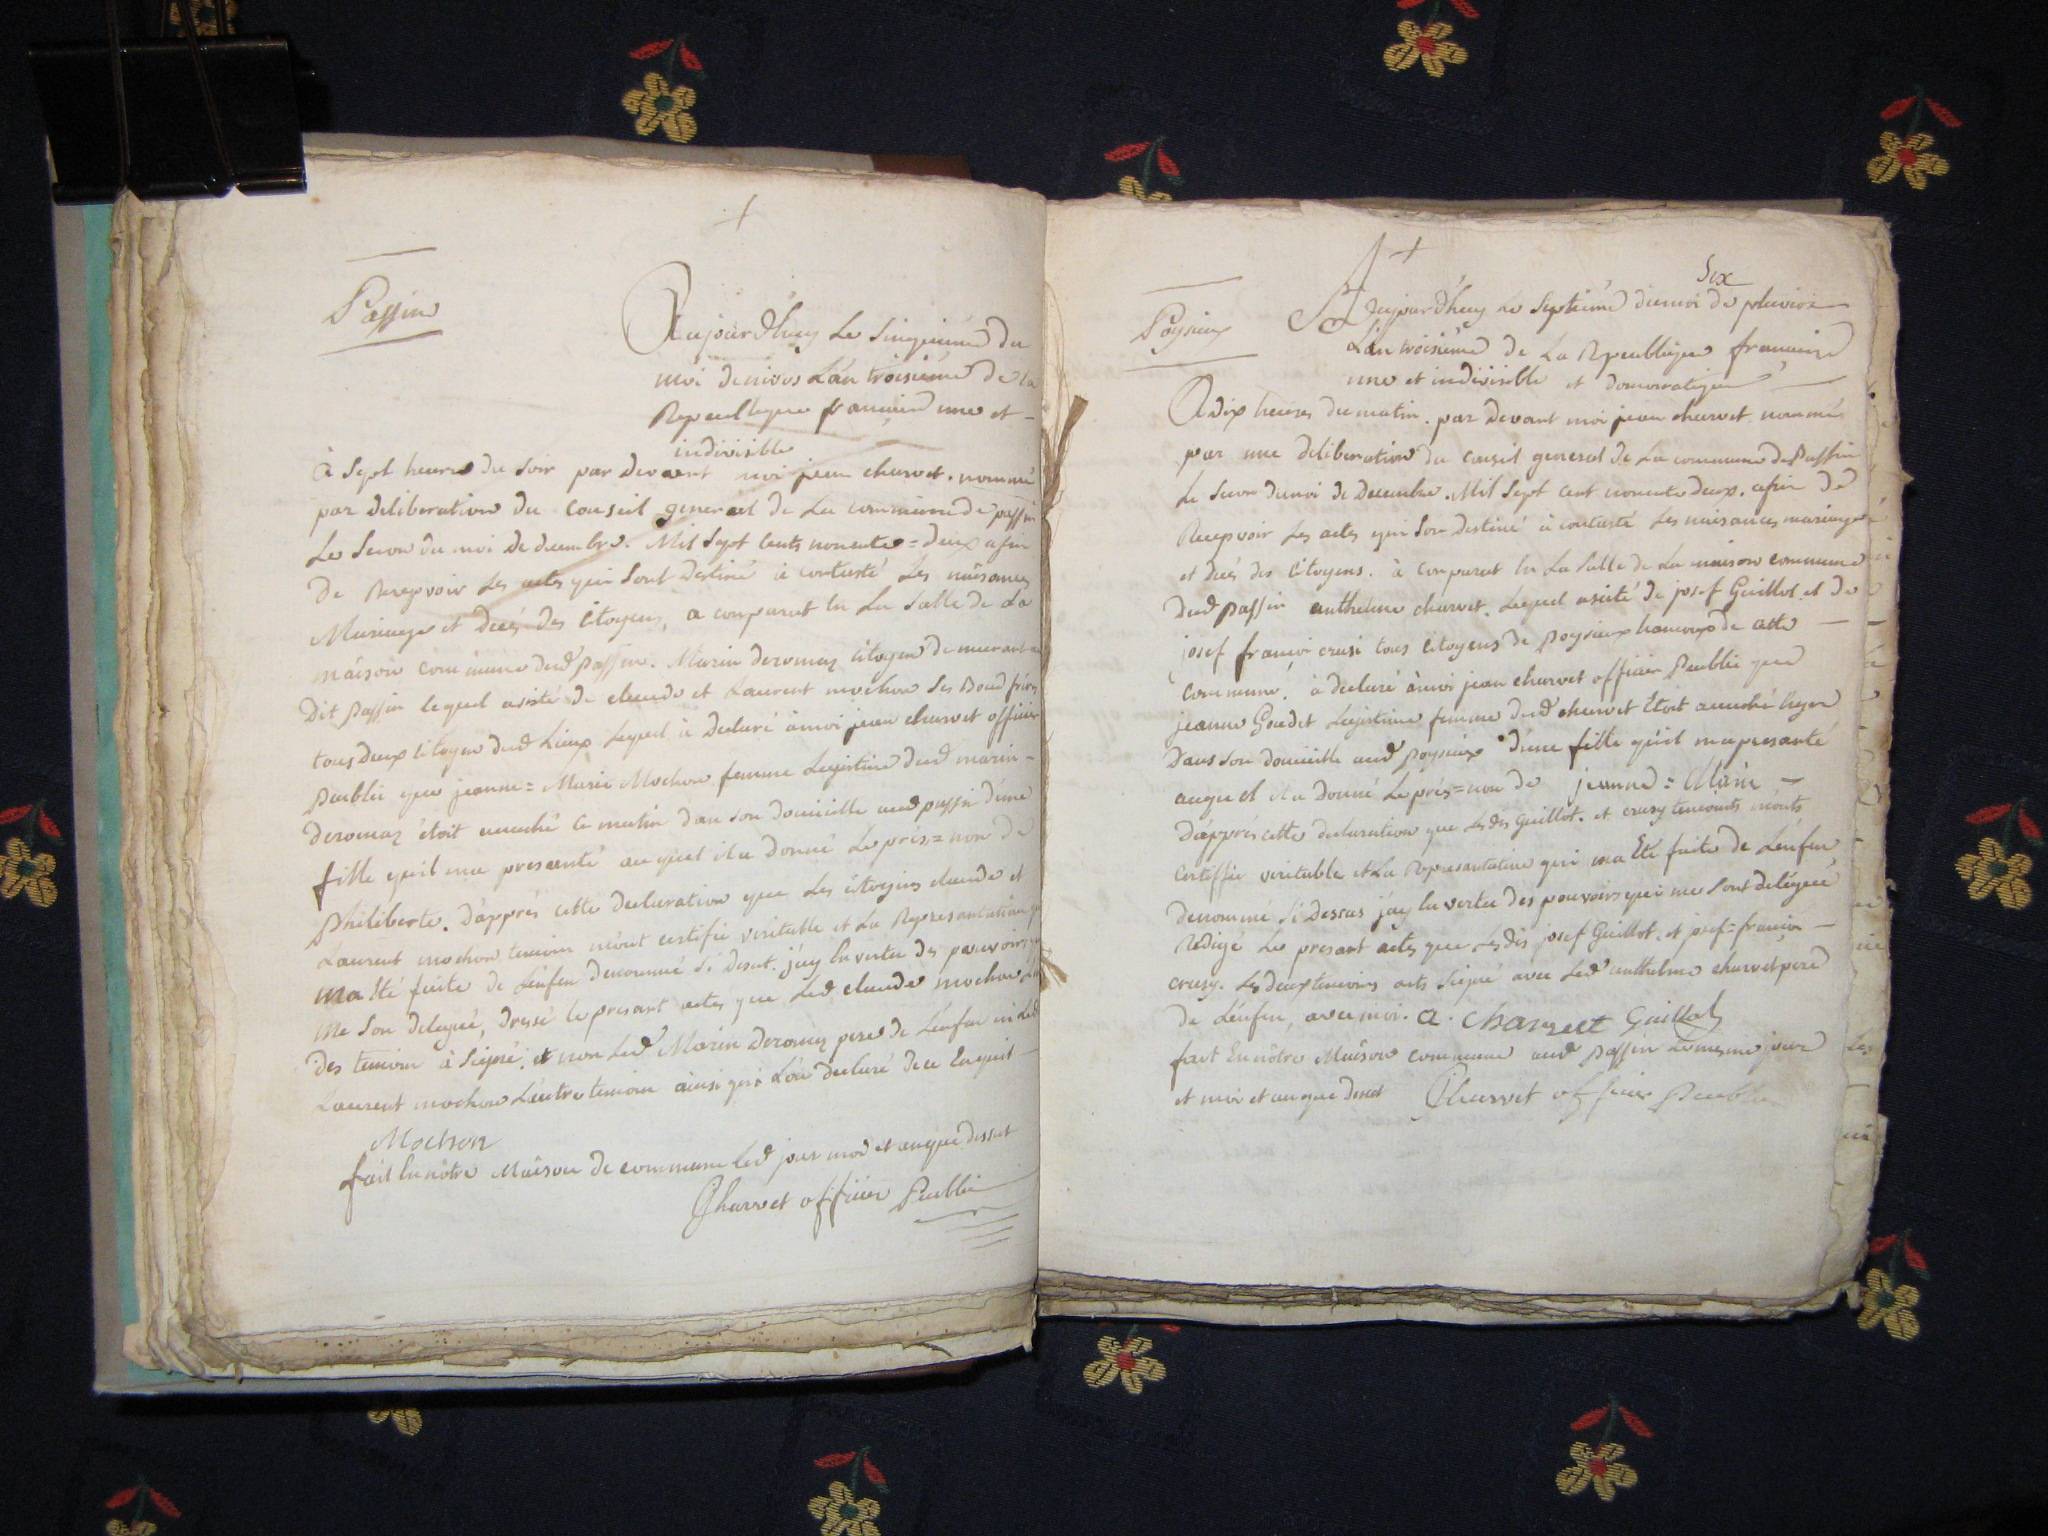 Passin
Aujourd'huy Le Sinquiemé du
moi de nivos L'an troisiéme de la
Republeque francaise une et
indivisible
à Sept heures du Soir par devent moi jean charvet. nommé
par deliberation du Conseil general de La commune de passin
Le Secon du moi de decembre. Mil Sept Cents nonente=deux afin
de Recepvoir Les actes qui Sont destiné à contasté Les naisances
Mariages et decés des Citoyens, a comparut En La Salle de La
maison commune dud passin. Marin deromaz Citoyen demeurant
dit passin lequel asisté de claude et Laurent mochon Ses Boud fréres
tous deux Citoyen dud Lieux Lequel à declaré à moi jean charvet officier
Publie que jeanne=Marie Mochon femme Legistime dud marin
deromaz étoit acouché ce matin dan son domicille aud passin d'une
fille qu'il ma presenté au quel il a donné Le prés=non de
Philiberte. d'apprés cette declaration que Les citoyens claude et
Laurent mochon temoin m'ont certifié veritable et La Represantation qui
ma Eté faite de L'enfan denommé Si desut. j'ay En vertu des pouvoirs qui
me Son delegué, dressé le presant actes que Led claude mochon L'un
des temoin à Signé, et non Led Marin deromaz pere de L'enfan ni Led
Laurent mochon L'autre temoin ainsi qu'il L'on declaré de ce Enquit
Mochon
fait En nôtre Maison de commune Led jour moi et an que dessut
Charvet officier Publie
Six
Poysieux
Aujourd'huy Le Septiéme du moi de pluvios
L'an troisiéme de La Republeque francaise
une et indivisible et democratique
A dix heures du matin. par devant moi jean charvet nommé
par une deliberation du Conseil general de La commune de Passin
Le Secon du moi de Decembre. Mil Sept Cent nonente deux. afin de
Recepvoir Les actes qui Son destiné à contasté Les naisances mariages
et decés des Citoyens. à comparut En La Salle de La maison commune
dud passin anthelme charvet. Lequel asisté de josef Guillot et de
josef francoi crusi tous Citoyens de Poysieux hameaux de cette
commune. à declaré à moi jean charvet officier Publie que
jeanne Goudet Legistime femme dud charvet Etoit acouché hyer
dans Son domicille aud poysieux d'une fille qu'il ma presanté
auquel il a donné Le prés=non de jeanne=Marie
d'apprés cette declaration que Les dis Guillot. et crusy temoints m'ont
Certiffié veritable et La Represantation qui ma Eté faite de L'enfan
denommé Si dessus j'ay En vertu des pouvoirs qui me Sont delégué
Redigé Le presant actes que Les dis josef Guillot. et josef=francoi
crusy. Les deux temoins onts Signé avec Led anthelme charvet pere
de L'enfan, avec moi. a. charvet Guillot
fait En nôtre Maison commune aud passin Le mesme jour
et moi et an que desut Charvet officier Publie